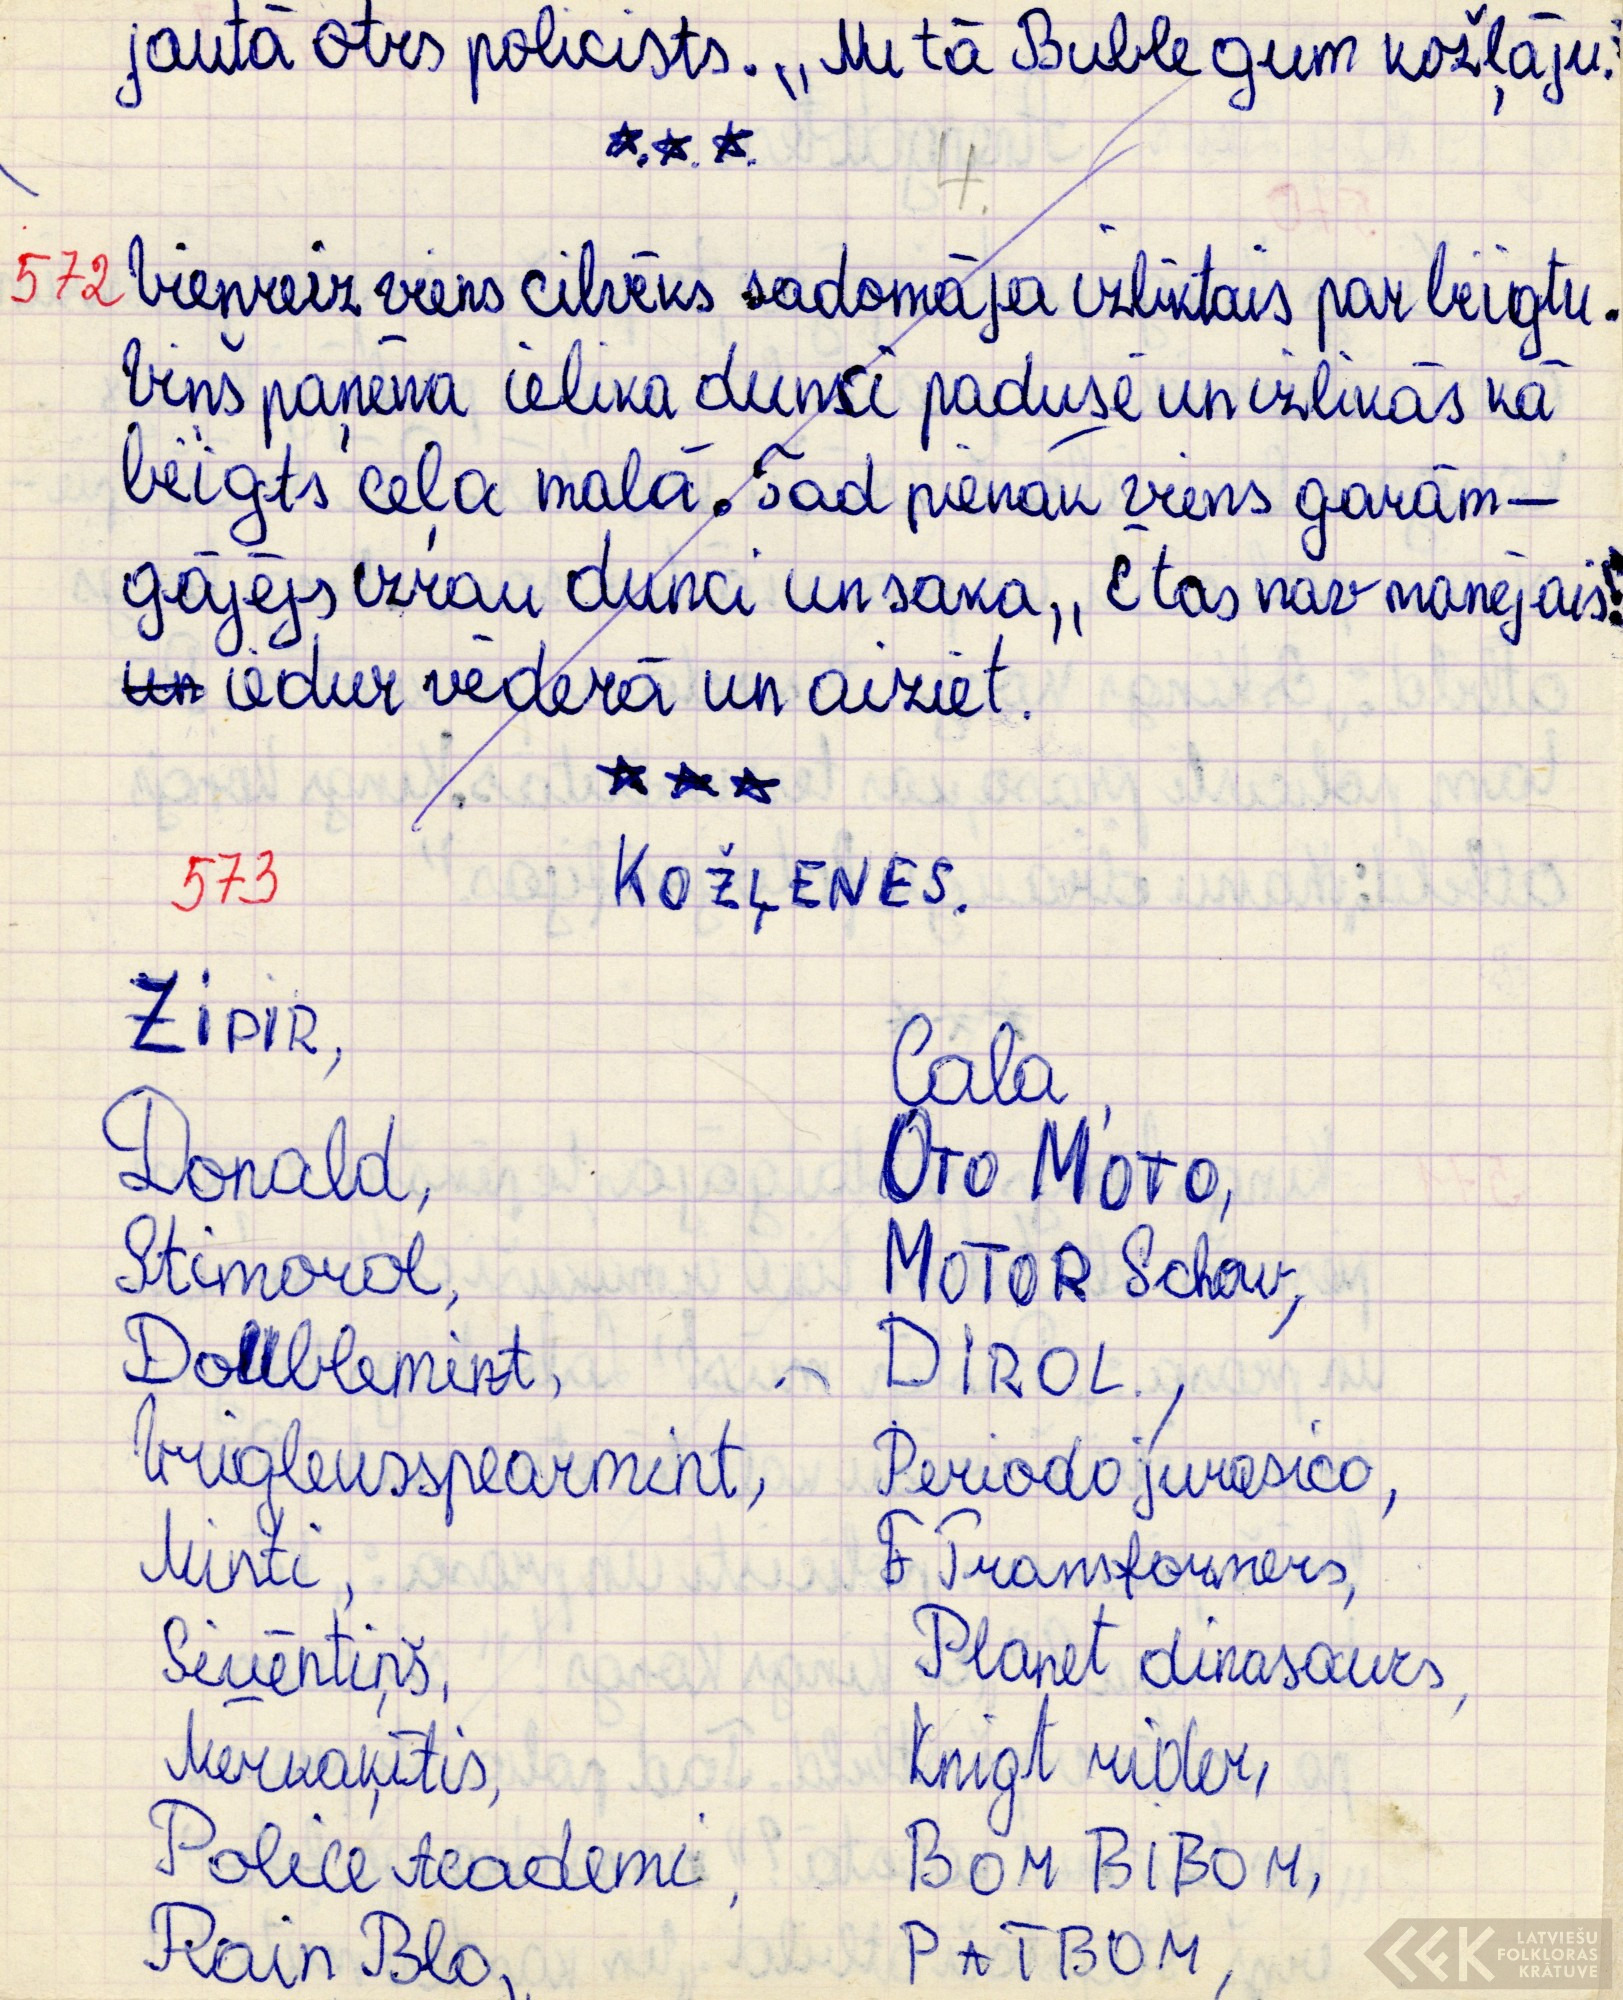 jautā otrs policists. „Mutā Buble gum kožļāju."
* * *
4.
572 Vienreiz viens cilvēks sadomāja izliktais par beigtu.
Viņš paņēma ielika dunci padusē un izlikās kā
beigts ceļa malā. Tad pienāk viens garām-
gājējs izrau dunci un saka „Ē tas nav manējais!
un iedur vēderā un aiziet.
* * *
573 KOŽĻENES.
ZIPIR,
Cala,
Donald,
OTO MOTO,
Stimorol,
MOTOR Schow,
Doublemint,
DIROL,
Vrigleusspearmint,
Periodo jurasico,
Minti,
F Transformers,
Sivēntiņš,
Planet dinasaurs,
Mērkaķītis,
Knigt rider,
Police academi,
BOM BIBOM,
Rain Blo,
PATBOM,
LATVIEŠU
FOLKLORAS
KRĀTUVE